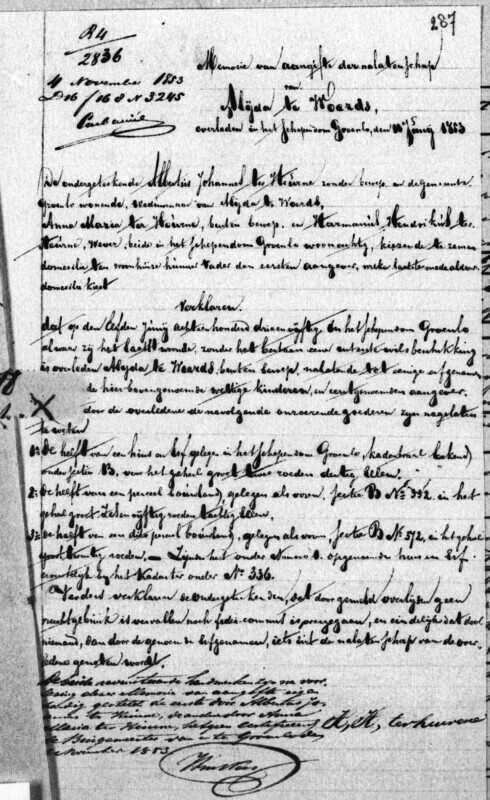 287
R4
2836
4 November 1853
D 16 f 168 N 3245
Memorie van aangifte der nalatenschap
van
Aleijda te Woerds,
overleden in het schependom Groenlo, den 11 Junij 1853
De ondergeteekende Albertus Johannes ter Heurne zonder beroep, in de gemeente
Groenlo wonende, weduwnaar van Aleijda te Woerds,
Anna Maria ter Heurne, buiten beroep, en Harmanus Hendrikus ter
Heurne, Wever, beide in het schependom Groenlo woonachtig, kiezende te zamen
domicilie ten woonhuize hunner Vader den eersten aangever,
domicilie kiest
Verklaren.
dat op den Elfden Junij achttien honderd drieenvijftig in het schependom Groenlo
alwaar zij het laatst woonde, zonder het bestaan eener uiterste wilsbeschikking
is overleden Aleijda te Woerds, buiten beroep, nalatende tot eenige erfgenamen
de hierbovengenoemde wettige kinderen, en
X door de overledene de navolgende onroerende goederen zijn nagelaten
te weten
1º De helft van een huis en erf gelegen in het schependom Groenlo, kadastraal bekend
onder sectie B, voor het geheel groot twee roeden dertig ellen.
2º De helft van een perceel bouwland, gelegen als voren, sectie B Nº 552, in het
geheel groot Zeven vijftig roeden tachtig ellen.
3º De helft van een dito perceel bouwland, gelegen als voren, sectie B Nº 572, in het geheel
groot twintig roeden. — Zijnde het onder Numero 1. opgenoemde huis en Erf
bij het Kadaster onder Nº 336.
Verders verklaren de ondergeteekenden, dat door gemeld overlijden geen
vruchtgebruik is vervallen noch fidei-commis is overgegaan, en eindelijk dat door
niemand, dan door de genoemde erfgenamen, iets uit de nalatenschap van de over-
ledene genoten wordt.
De beide nevenstaande handmerken zijn voor
lezing dezer Memorie van aangifte eigen
handig gesteld de eerste door Albertus Jo
hannes te Heurne, de andere door Anna
Maria te Heurne, hetgeen certificeert
de Burgemeester van Groenlo den
November 1853
X, X, ter heurne